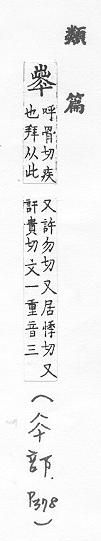 類篇
𠦪
呼骨切疾
也拜从此
又許勿切又居悸切又
許貴切文一重音三
P378